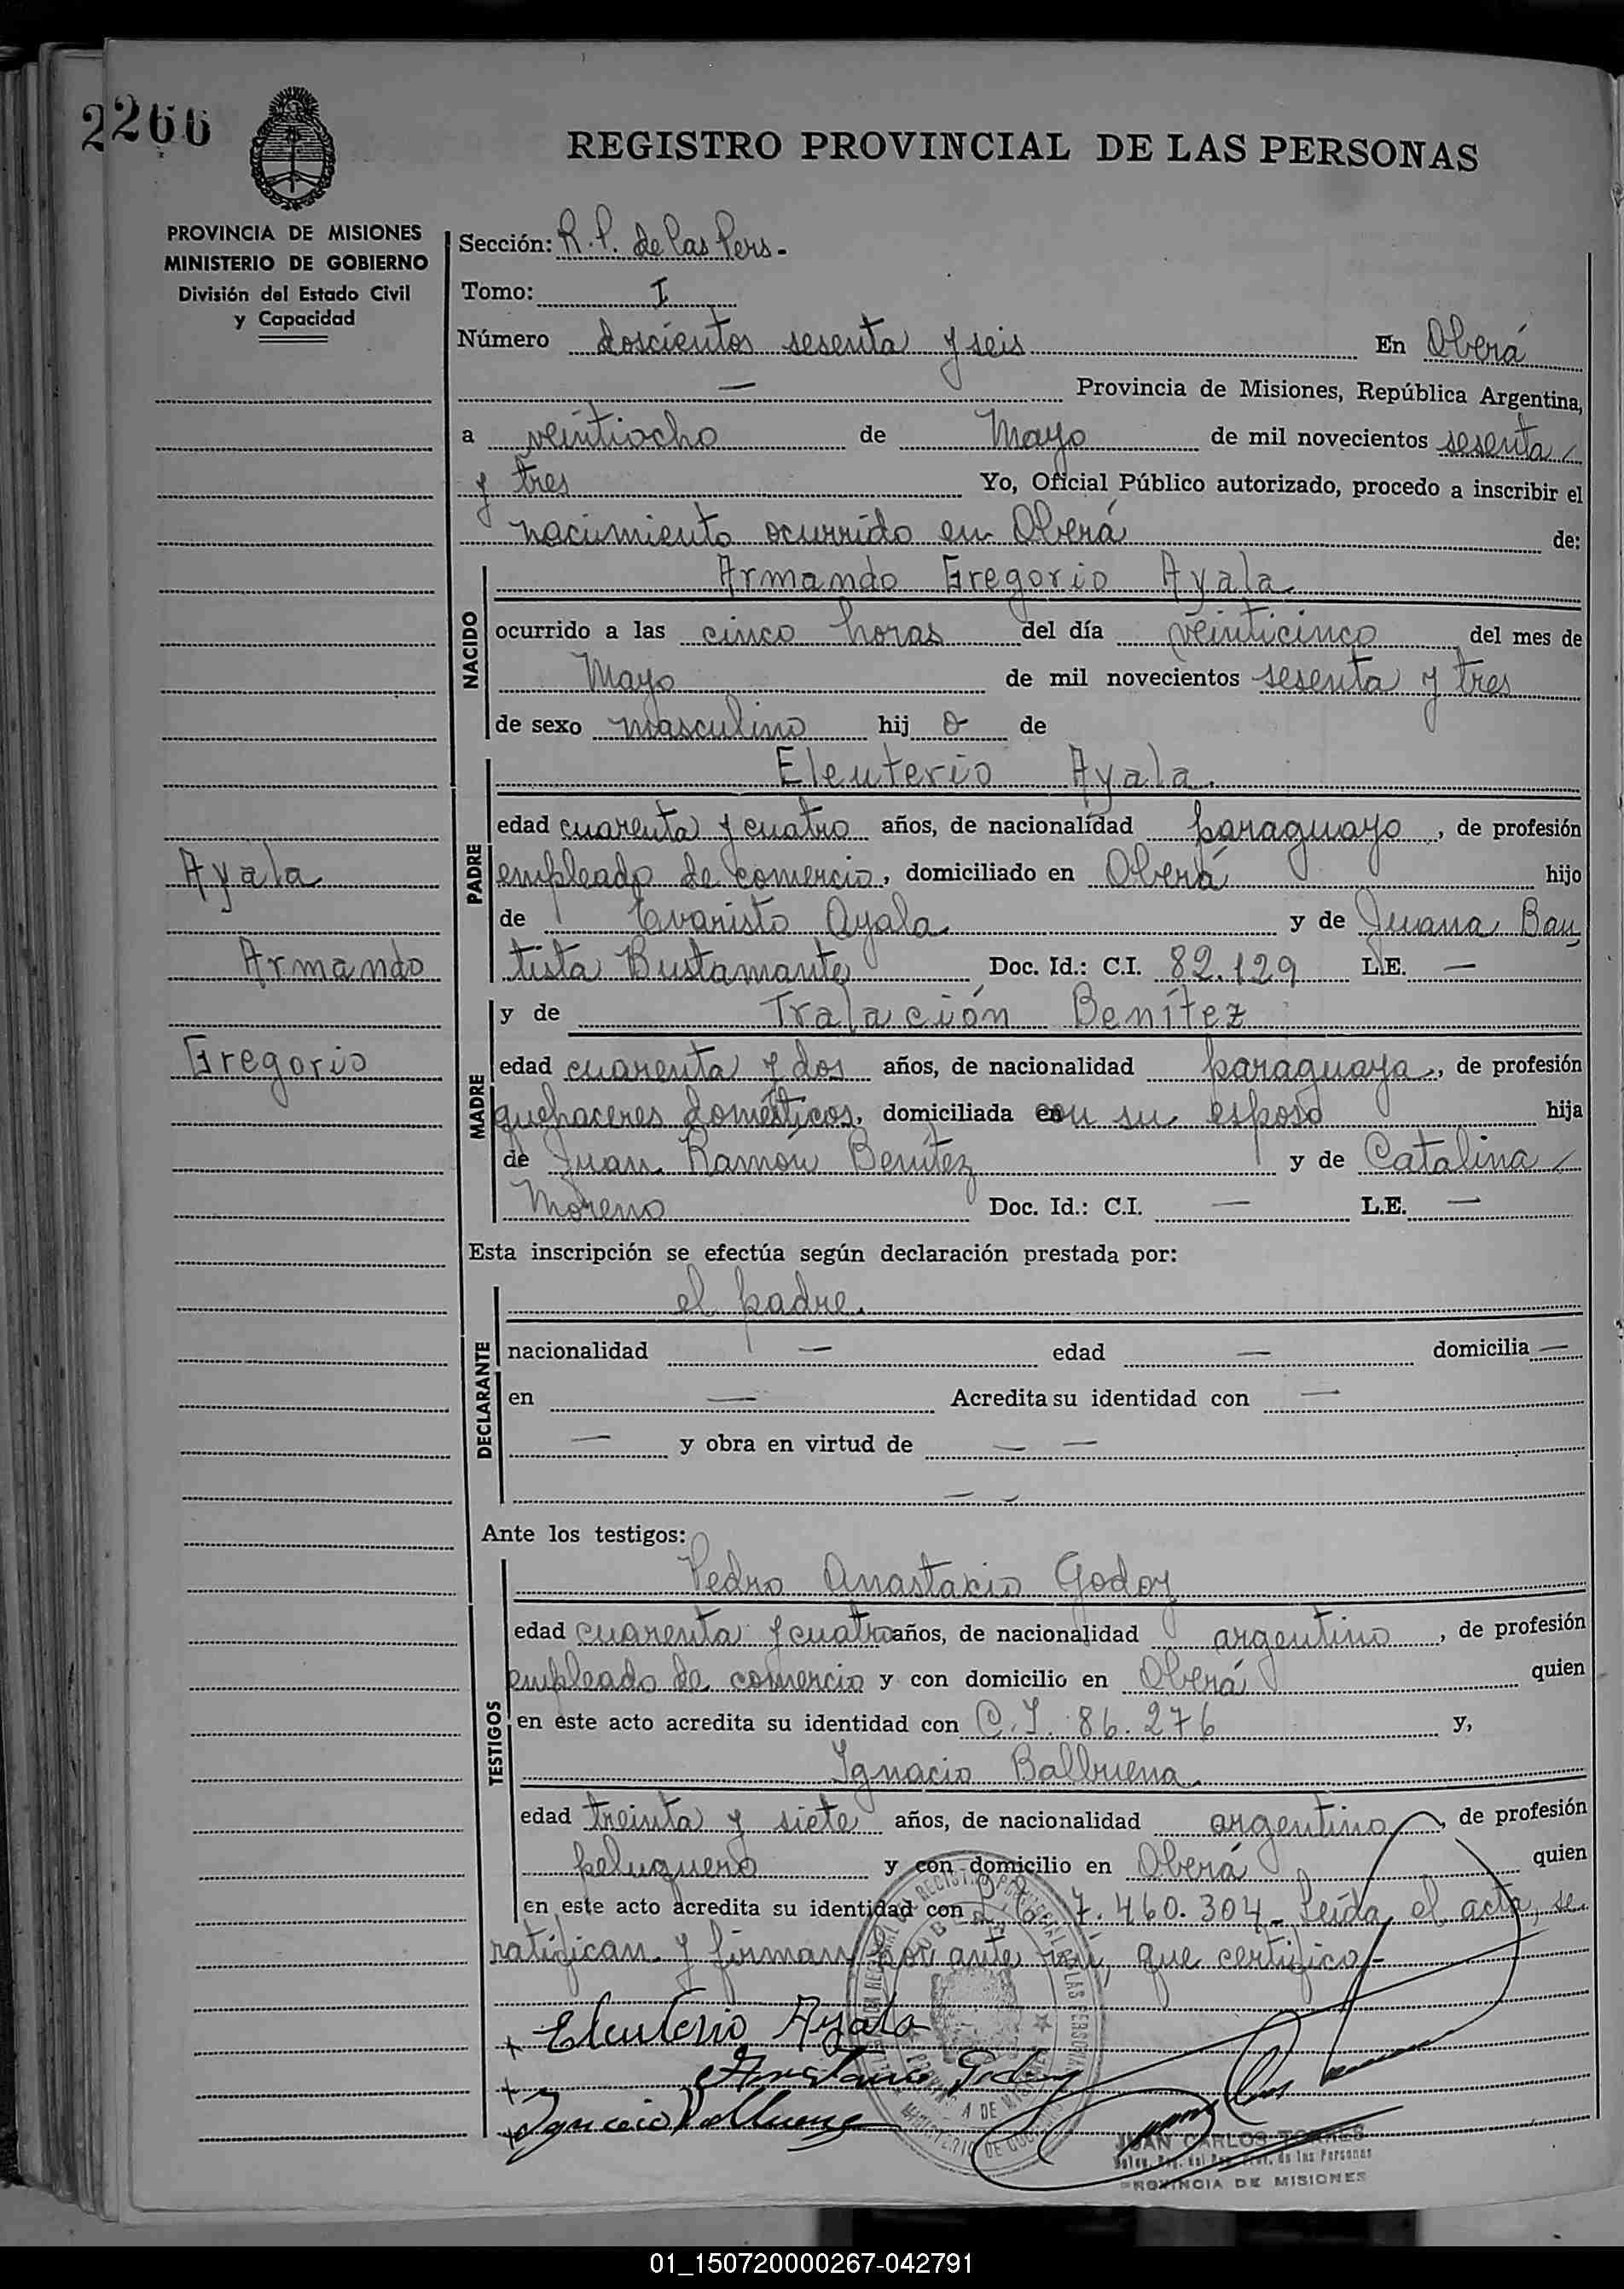 2266
REGISTRO PROVINCIAL DE LAS PERSONAS
PROVINCIA DE MISIONES
MINISTERIO DE GOBIERNO
División del Estado Civil
y Capacidad
Sección: R. P. de las Pers-
Tomo: I
Número doscientos sesenta y seis En Oberá
— Provincia de Misiones, República Argentina,
a veintiocho de Mayo de mil novecientos sesenta
y tres Yo, Oficial Público autorizado, procedo a inscribir el
nacimiento ocurrido en Oberá de:
NACIDO
Armando Gregorio Ayala
ocurrido a las cinco horas del día veinticinco del mes de
Mayo de mil novecientos sesenta y tres
de sexo masculino hij o de
PADRE
Eleuterio Ayala.
edad cuarenta y cuatro años, de nacionalidad paraguayo, de profesión
empleado de comercio, domiciliado en Oberá hijo
de Evaristo Ayala y de Juana Bau
tista Bustamante Doc. Id.: C.I. 82.129 L.E. —
Ayala
Armando
Gregorio
MADRE
y de Tralación Benítez
edad cuarenta y dos años, de nacionalidad paraguaya, de profesión
quehaceres domésticos, domiciliada con su esposo hija
de Juan Ramon Benítez y de Catalina
Moreno Doc. Id.: C.I. — L.E. —
Esta inscripción se efectúa según declaración prestada por:
DECLARANTE
el padre.
nacionalidad — edad — domicilia —
en — Acredita su identidad con —
— y obra en virtud de — —
— —
Ante los testigos:
TESTIGOS
Pedro Anastacio Godoy
edad cuarenta y cuatro años, de nacionalidad argentino, de profesión
empleado de comercio y con domicilio en Oberá quien
en este acto acredita su identidad con C.I. 86.276 y,
Ignacio Balbuena
edad treinta y siete años, de nacionalidad argentino, de profesión
peluquero y con domicilio en Oberá quien
en este acto acredita su identidad con 7.460.304- Leída el acta, se
ratifican y firman por ante mí, que certifico-
Eleuterio Ayala
Anastacio Godoy
Ignacio Balbuena
JUAN CARLOS TORRES
de las Personas
PROVINCIA DE MISIONES
01_150720000267-042791